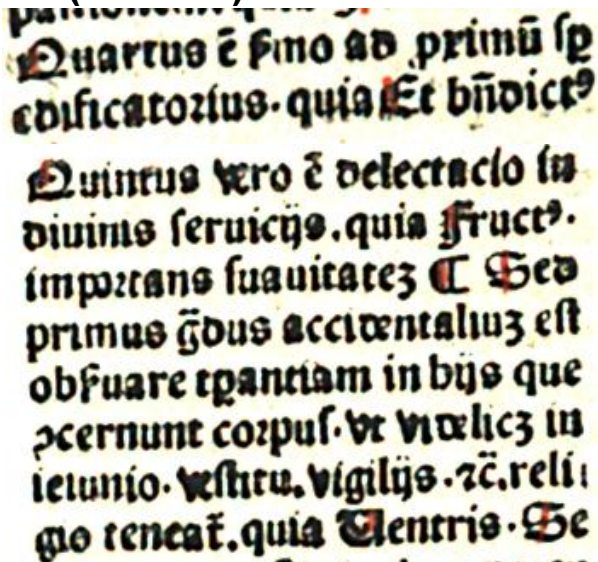 Quartus ē ẜmo ad primū ſꝑ
edificatorius. quia Et bn̄dictꝰ
Quintus vero ē delectacio in
diuinis ſeruicijs. quia Fructꝰ.
importans ſuauitateʒ ¶ Sed
primus g̃dus accidentaliuʒ eſt
obẜuare tꝑantiam in hijs que
ↄcernunt corpuſ. vt videlicʒ in
ieiunio. veſtitu. vigilijs. ⁊c̄. reli
gio teneat̄. quia Uentris. Se